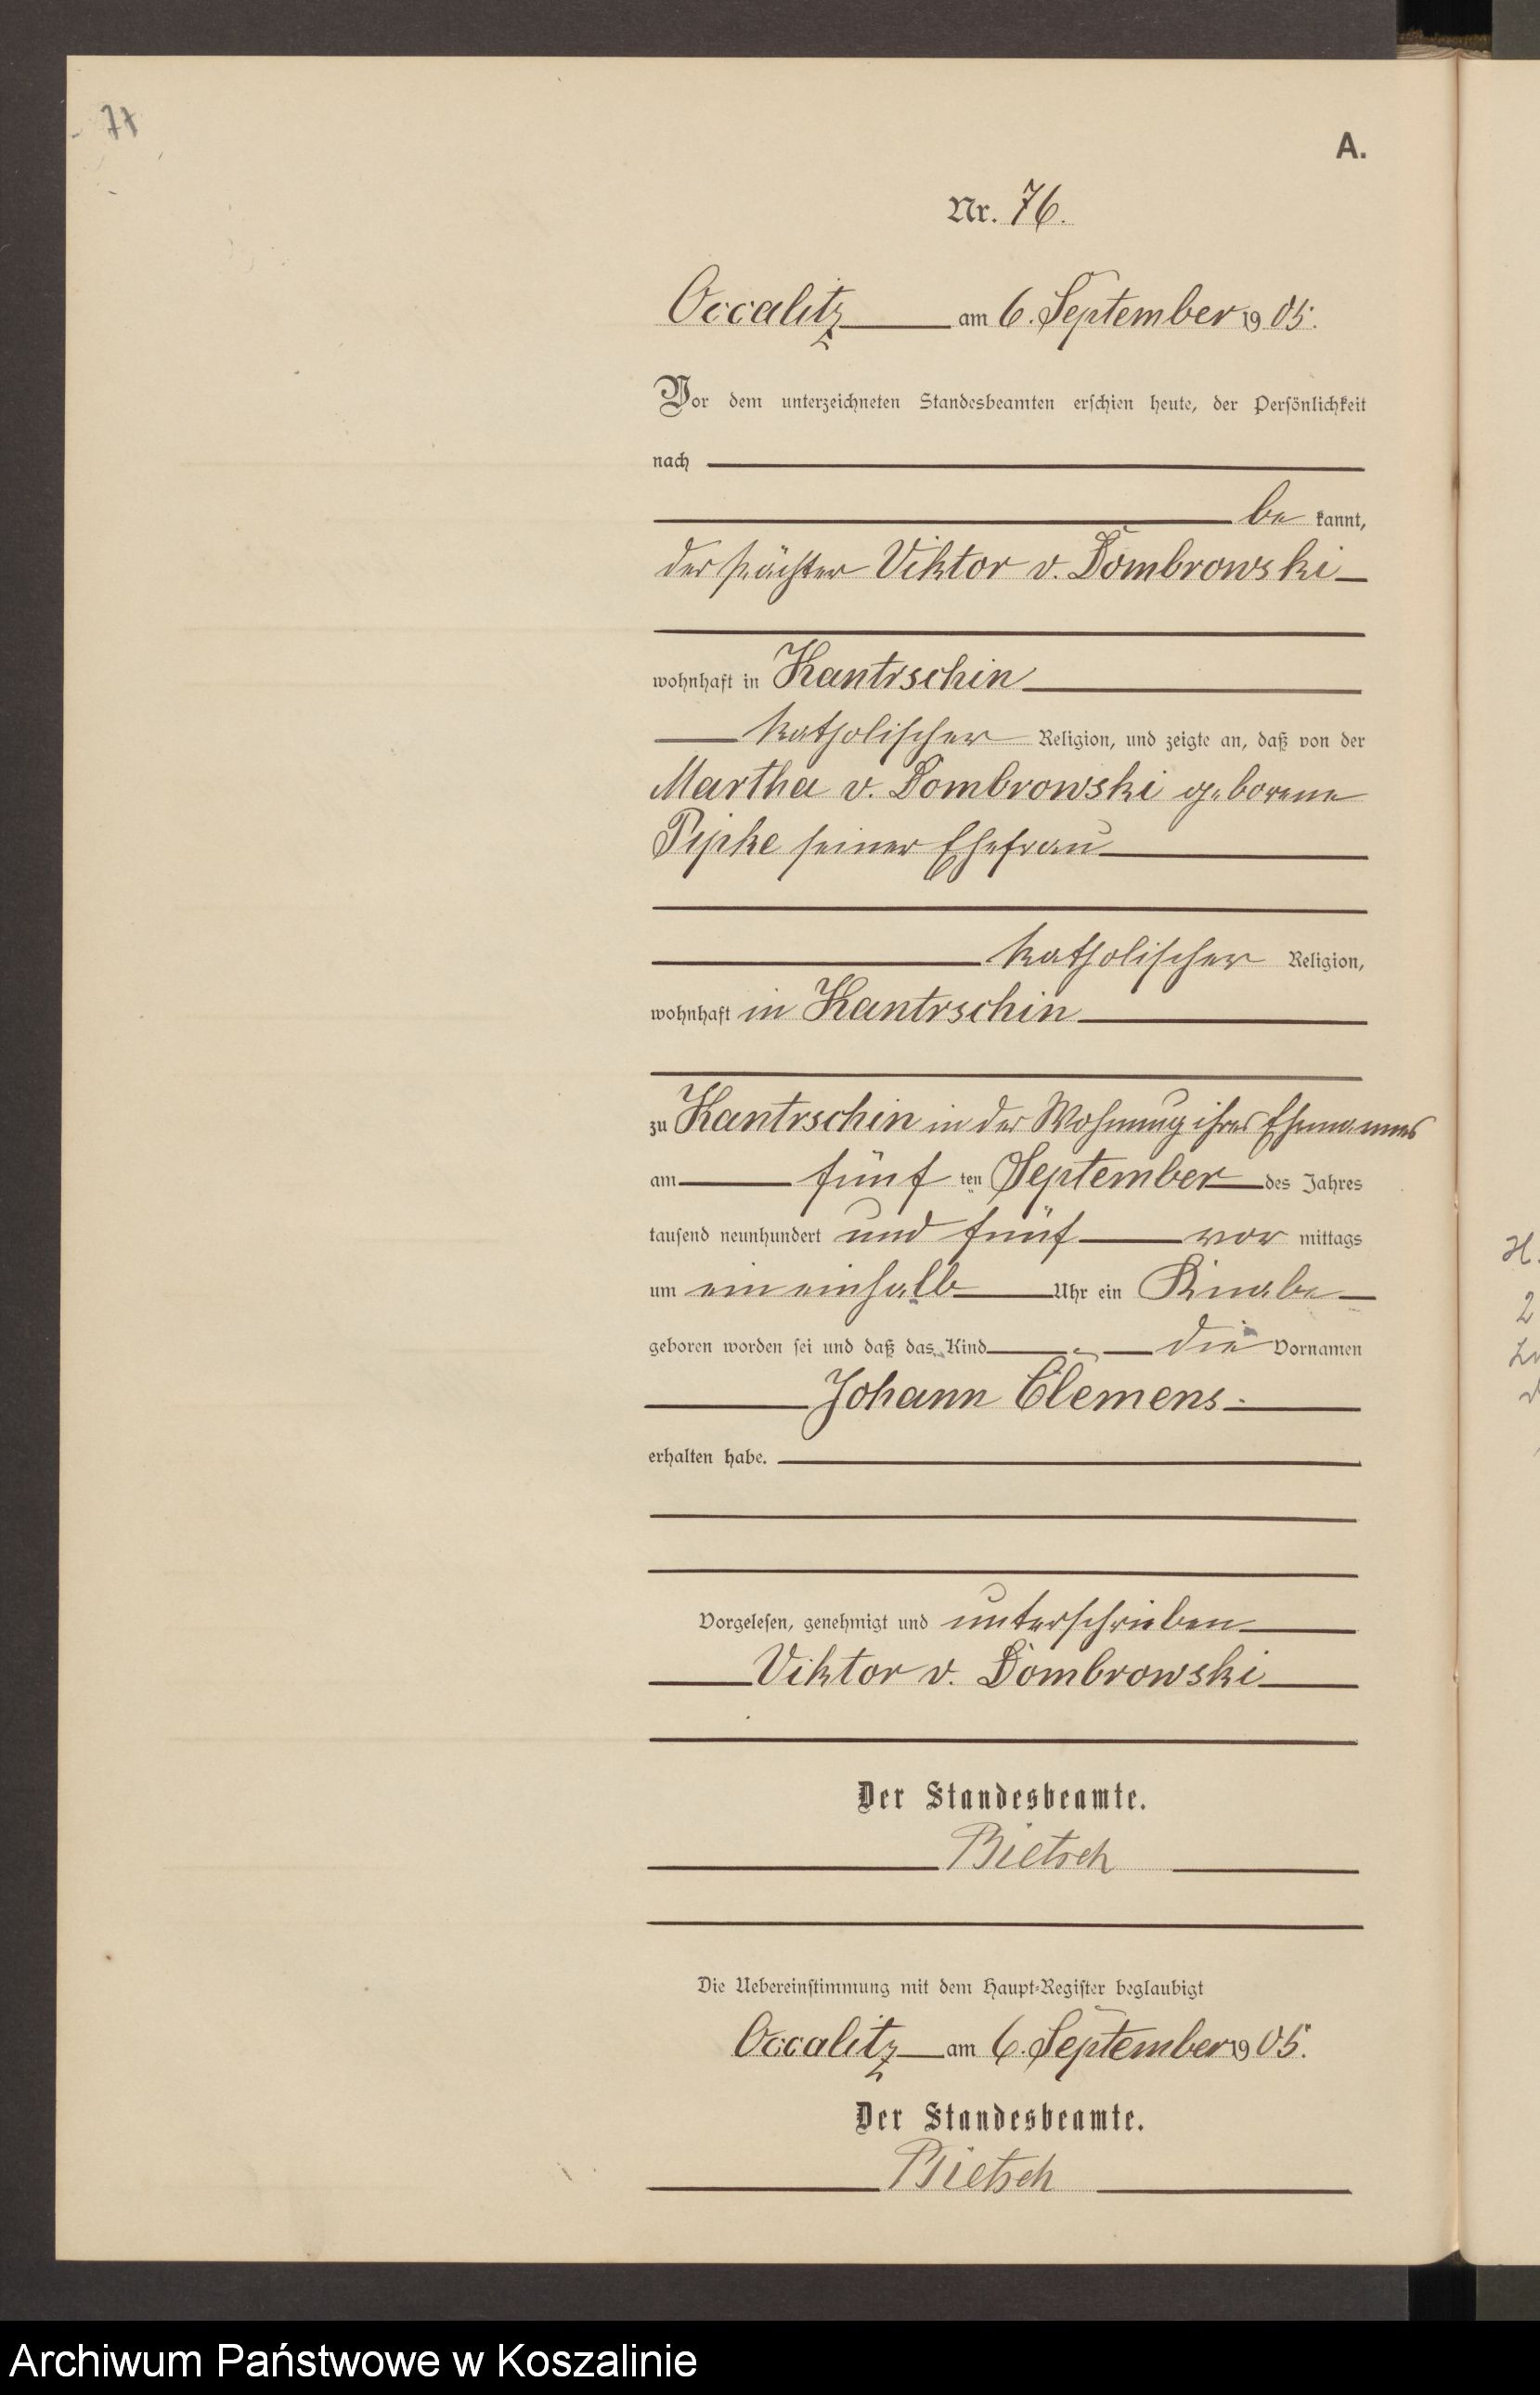 77
A.
Nr. 76.
Occalitz am 6. September 1905.
Vor dem unterzeichneten Standesbeamten erschien heute, der Persönlichkeit
nach
be kannt,
der Pächter Viktor v. Dombrowski
wohnhaft in Kantrschin
katholischer Religion, und zeigte an, daß von der
Martha v. Dombrowski geborene
Pipke seiner Ehefrau
katholischer Religion,
wohnhaft in Kantrschin
zu Kantrschin in der Wohnung ihres Ehemannes
am fünf ten September des Jahres
tausend neunhundert und fünf vor mittags
um ein einhalb Uhr ein Knabe
geboren worden sei und daß das Kind die Vornamen
Johann Clemens
erhalten habe.
Vorgelesen, genehmigt und unterschrieben
Viktor v. Dombrowski
Der Standesbeamte.
Bietsch
Die Uebereinstimmung mit dem Haupt-Register beglaubigt
Occalitz am 6. September 1905.
Der Standesbeamte.
Bietsch
Archiwum Państwowe w Koszalinie